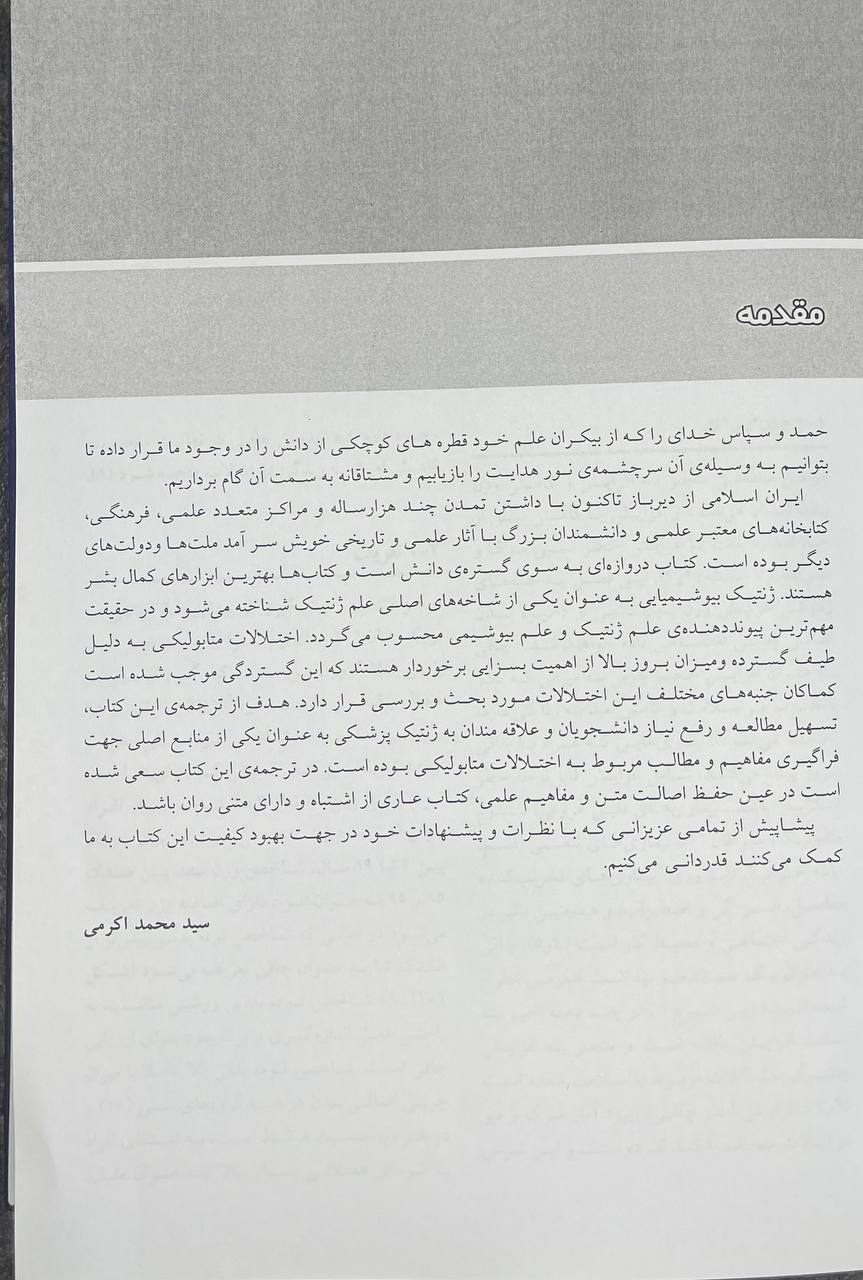 مقدمه
حمد و سپاس خدای را که از بیکران علم خود قطره های کوچکی از دانش را در وجود ما قرار داده تا
بتوانیم به وسیله‌ی آن سرچشمه‌ی نور هدایت را بازیابیم و مشتاقانه به سمت آن گام برداریم.
ایران اسلامی از دیرباز تاکنون با داشتن تمدن چند هزارساله و مراکز متعدد علمی، فرهنگی،
کتابخانه‌های معتبر علمی و دانشمندان بزرگ با آثار علمی و تاریخی خویش سر آمد ملت‌ها ودولت‌های
دیگر بوده است. کتاب دروازه‌ای به سوی گستره‌ی دانش است و کتاب‌ها بهترین ابزارهای کمال بشر
هستند. ژنتیک بیوشیمیایی به عنوان یکی از شاخه‌های اصلی علم ژنتیک شناخته می‌شود و در حقیقت
مهم‌ترین پیونددهنده‌ی علم ژنتیک و علم بیوشیمی محسوب می‌گردد. اختلالات متابولیکی به دلیل
طیف گسترده ومیزان بروز بالا از اهمیت بسزایی برخوردار هستند که این گستردگی موجب شده است
کماکان جنبه‌های مختلف این اختلالات مورد بحث و بررسی قرار دارد. هدف از ترجمه‌ی این کتاب،
تسهیل مطالعه و رفع نیاز دانشجویان و علاقه مندان به ژنتیک پزشکی به عنوان یکی از منابع اصلی جهت
فراگیری مفاهیم و مطالب مربوط به اختلالات متابولیکی بوده است. در ترجمه‌ی این کتاب سعی شده
است در عین حفظ اصالت متن و مفاهیم علمی، کتاب عاری از اشتباه و دارای متنی روان باشد.
پیشاپیش از تمامی عزیزانی که با نظرات و پیشنهادات خود در جهت بهبود کیفیت این کتاب به ما
کمک می‌کنند قدردانی می‌کنیم.
سید محمد اکرمی